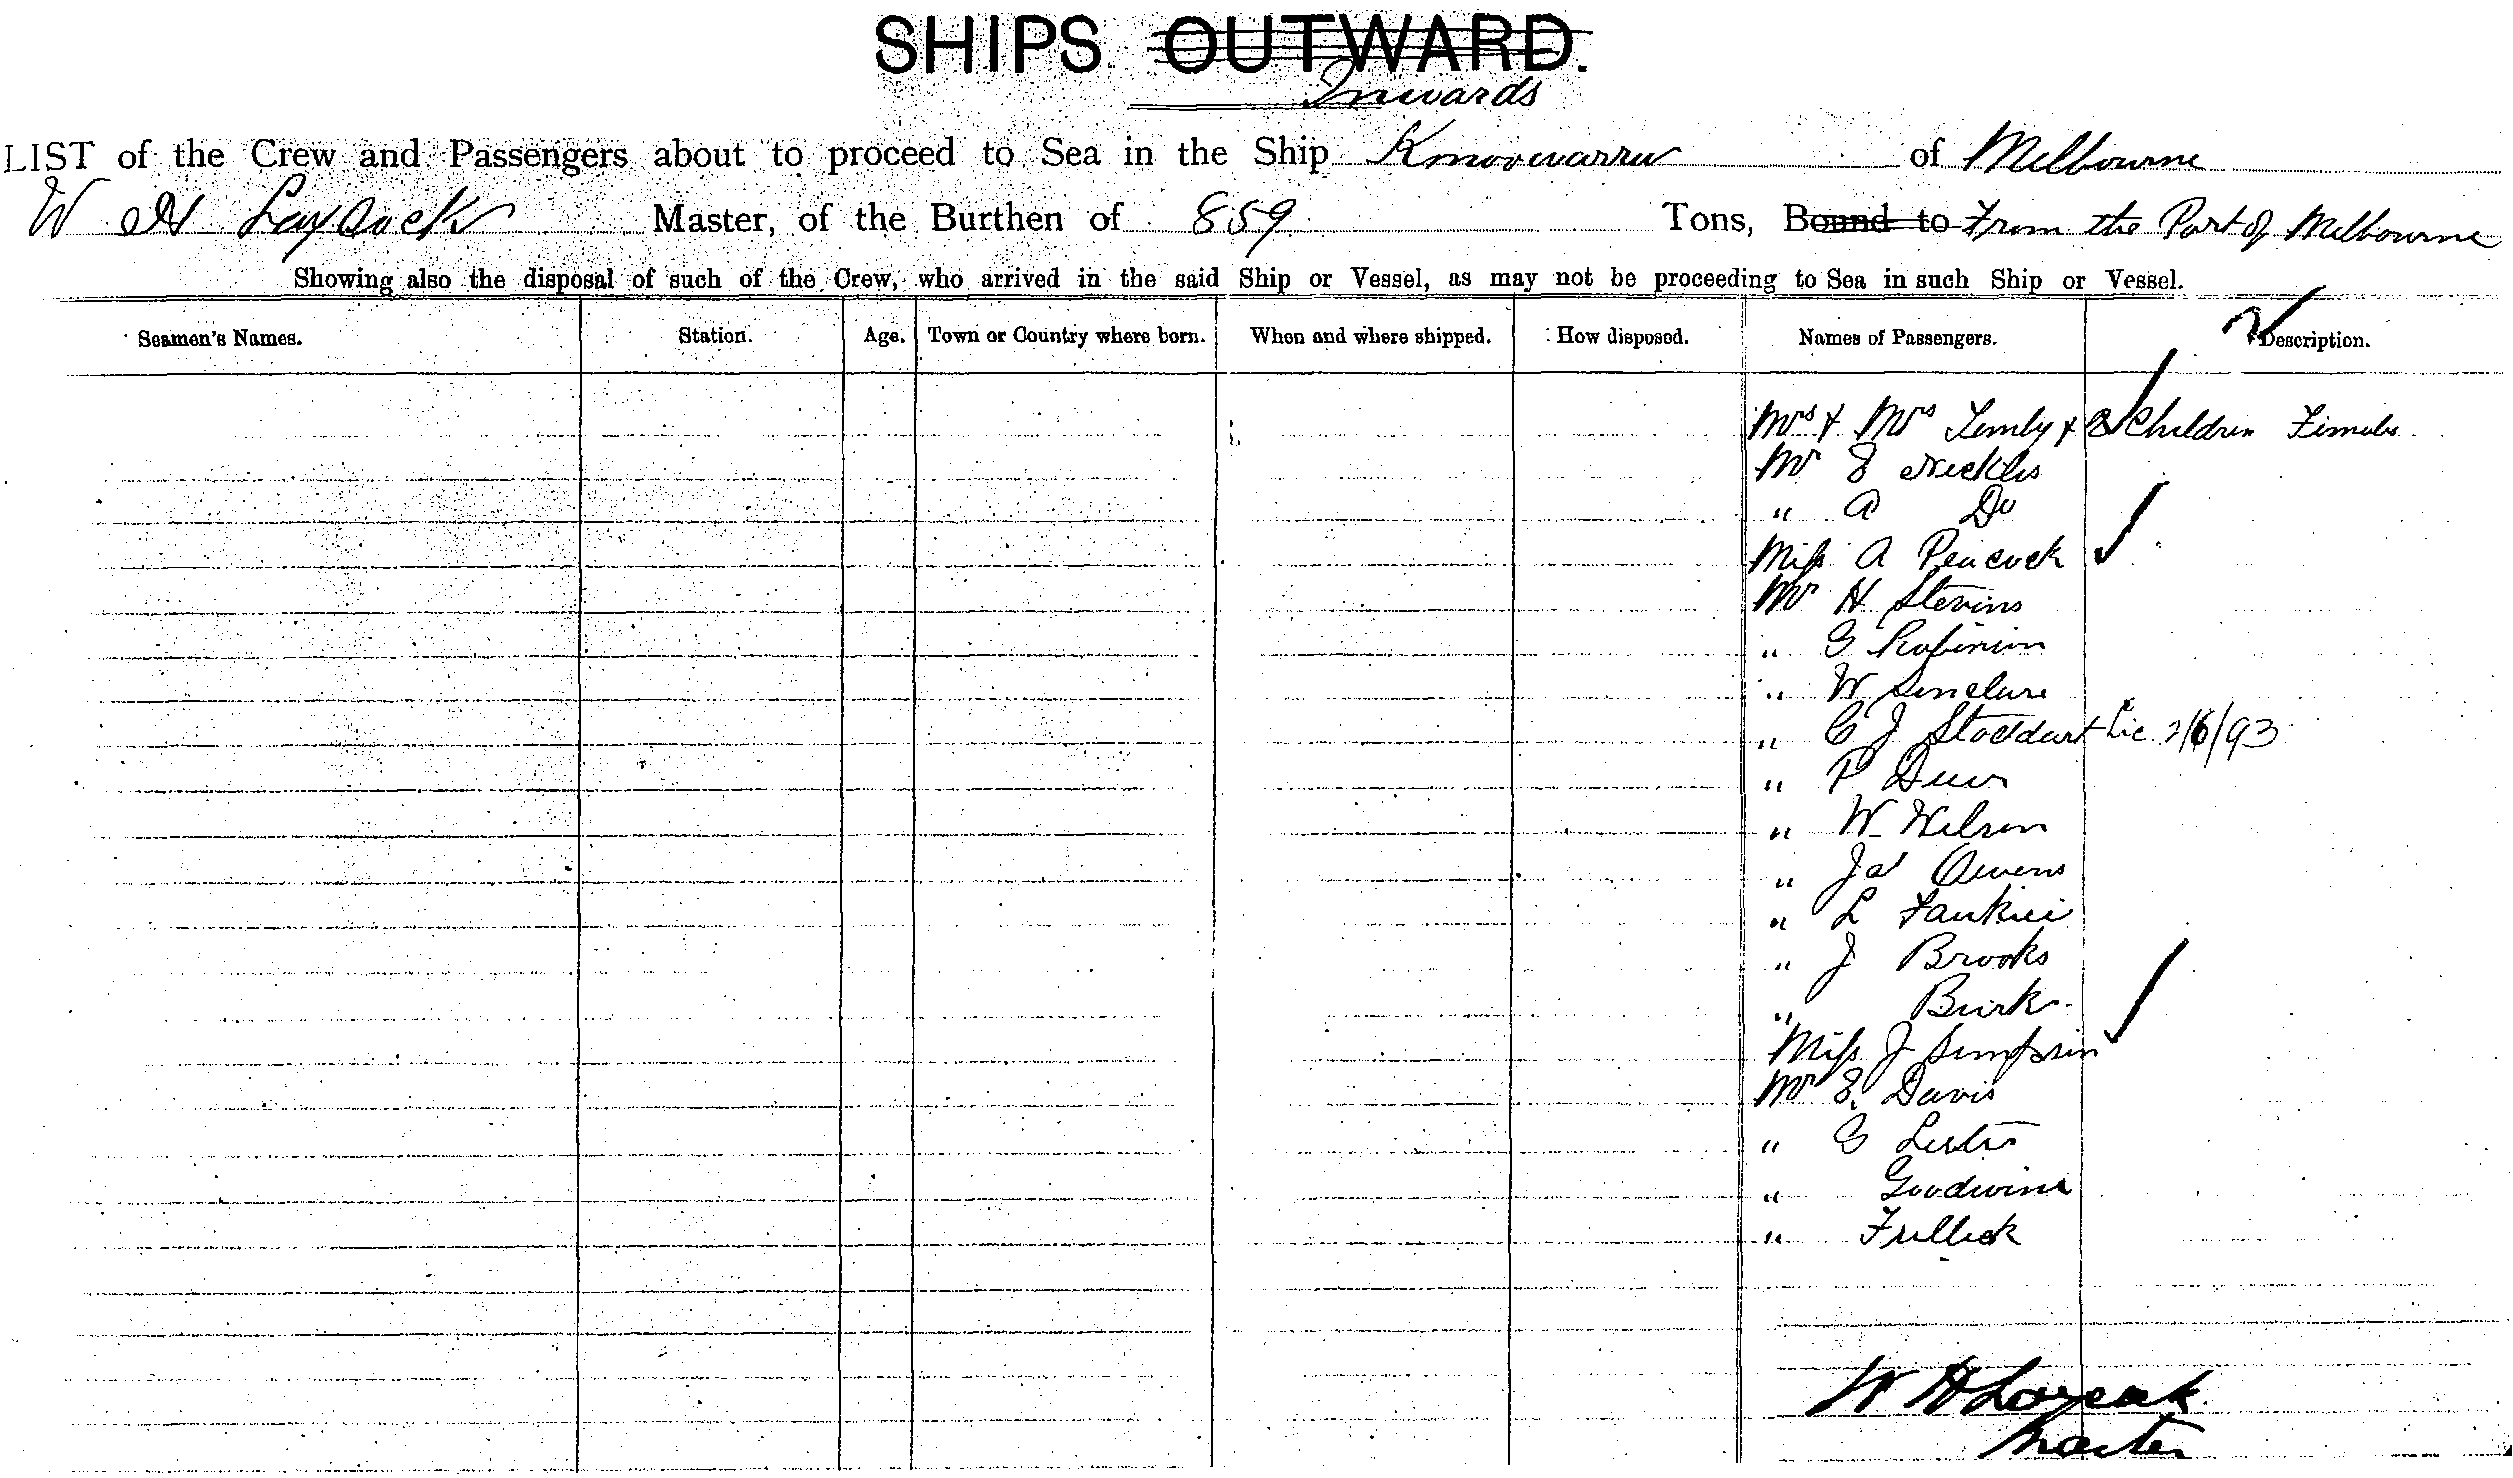 SHIPS OUTWARD.
Inwards
LIST of the Crew and Passengers about to proceed to Sea in the Ship Konoowarra of Melbourne
W H Laycock Master, of the Burthen of 859 Tons, Bound to From the Port of Melbourne
Showing also the disposal of such of the Crew, who arrived in the said Ship or Vessel, as may not be proceeding to Sea in such Ship or Vessel.
Seamen's Names. Station. Age. Town or Country where born. When and where shipped. How disposed. Names of Passengers. Description.
Mrs & Mrs & Children
Mr
" A Do
Miss A Peacock
Mr H Stevens
" G Robinson
" W Sinclare
" C J Stoddart Lic 2/6/93
" P
" W Wilson
" Jas Owens
" L
" J Brooks
" Burk
Miss J Simpson
Mr E. Davis
" G Lester
" Goodwine
"
W H Laycock
Master